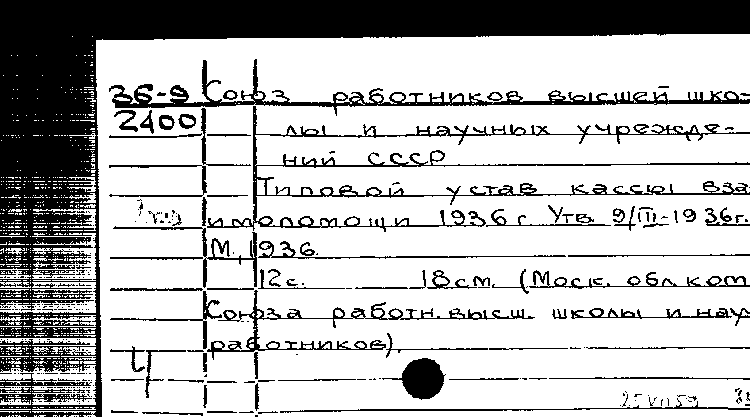 36-9 Союз работников высшей шко-
2400 лы и научных учрежде-
ний СССР
Типовой устав кассы вза
имопомощи 1936 г. Утв. 9/III-1936г.
М., 1936.
12с. 18см. (Моск. обл. ком
Союза работн. высш. школы и нау
работников).
Ч
25 VII 59